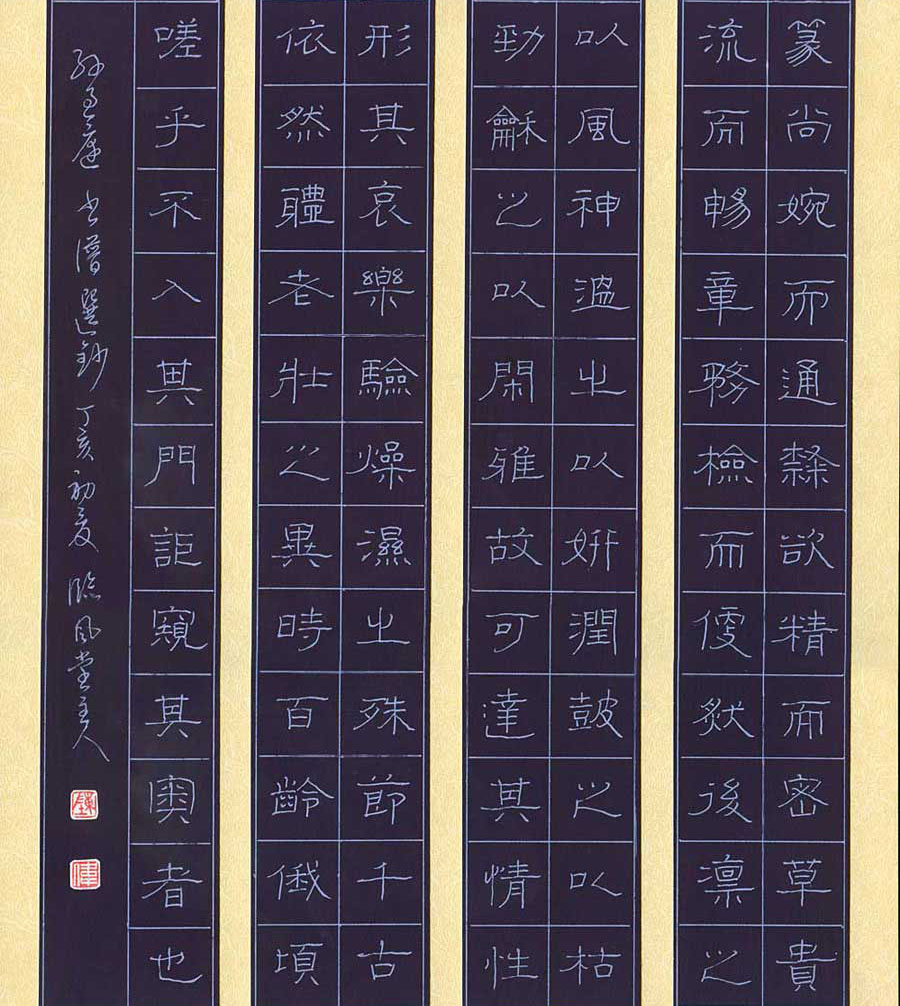 篆尚婉而通隸欲精而密草貴
流而暢章務檢而便然後凜之
以風神溫之以妍潤鼓之以枯
勁龢之以閑雅故可達其情性
形其哀樂驗燥濕之殊節千古
依然體老壯之異時百齡俄頃
嗟乎不入其門詎窺其奧者也
孫過庭書譜選鈔丁亥初夏臨風堂主人